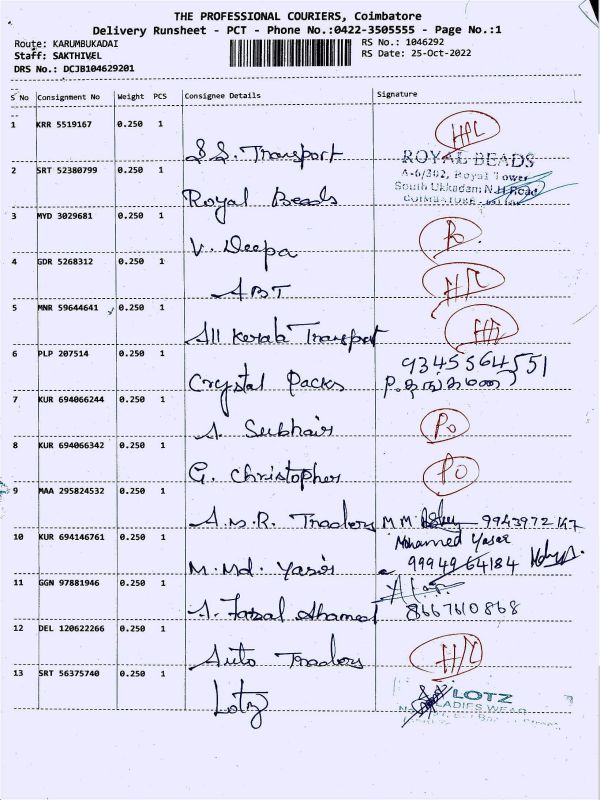 THE PROFESSIONAL COURIERS, Coimbatore
Delivery Runsheet - PCT - Phone No.:0422-3505555 - Page No.:1
Route: KARUMBUKADAI
RS No.: 1046292
Staff: SAKTHIVEL
RS Date: 25-Oct-2022
DRS No.: DCJB104629201
S No Consignment No Weight PCS Consignee Details Signature
1 KRR 5519167 0.250 1
S.S. Transport
ROYAL BEADS
A-6/302, Royal Tower
South Ukkadam, N.H Road
COIMBATORE
2 SRT 52380799 0.250 1
Royal Beads
3 MYD 3029681 0.250 1
V. Deepa
4 GDR 5268312 0.250 1
ABT
H/L
5 MNR 59644641 0.250 1
All Kerala Transport
6 PLP 207514 0.250 1
9345564551
Crystal Packs
P. தங்கமணி
7 KUR 694066244 0.250 1
A. Subhair
Po
8 KUR 694066342 0.250 1
G. Christopher
Po
9 MAA 295824532 0.250 1
A.M.R. Traders M M 9943972147
10 KUR 694146761 0.250 1
Mohamed Yasar
M. Md. Yasir 9994964184
11 GGN 97881946 0.250 1
A. Faizal Ahamed 8667610868
12 DEL 120622266 0.250 1
Auto Traders
H/L
13 SRT 56375740 0.250 1
Lotz
LOTZ
LADIES WEAR